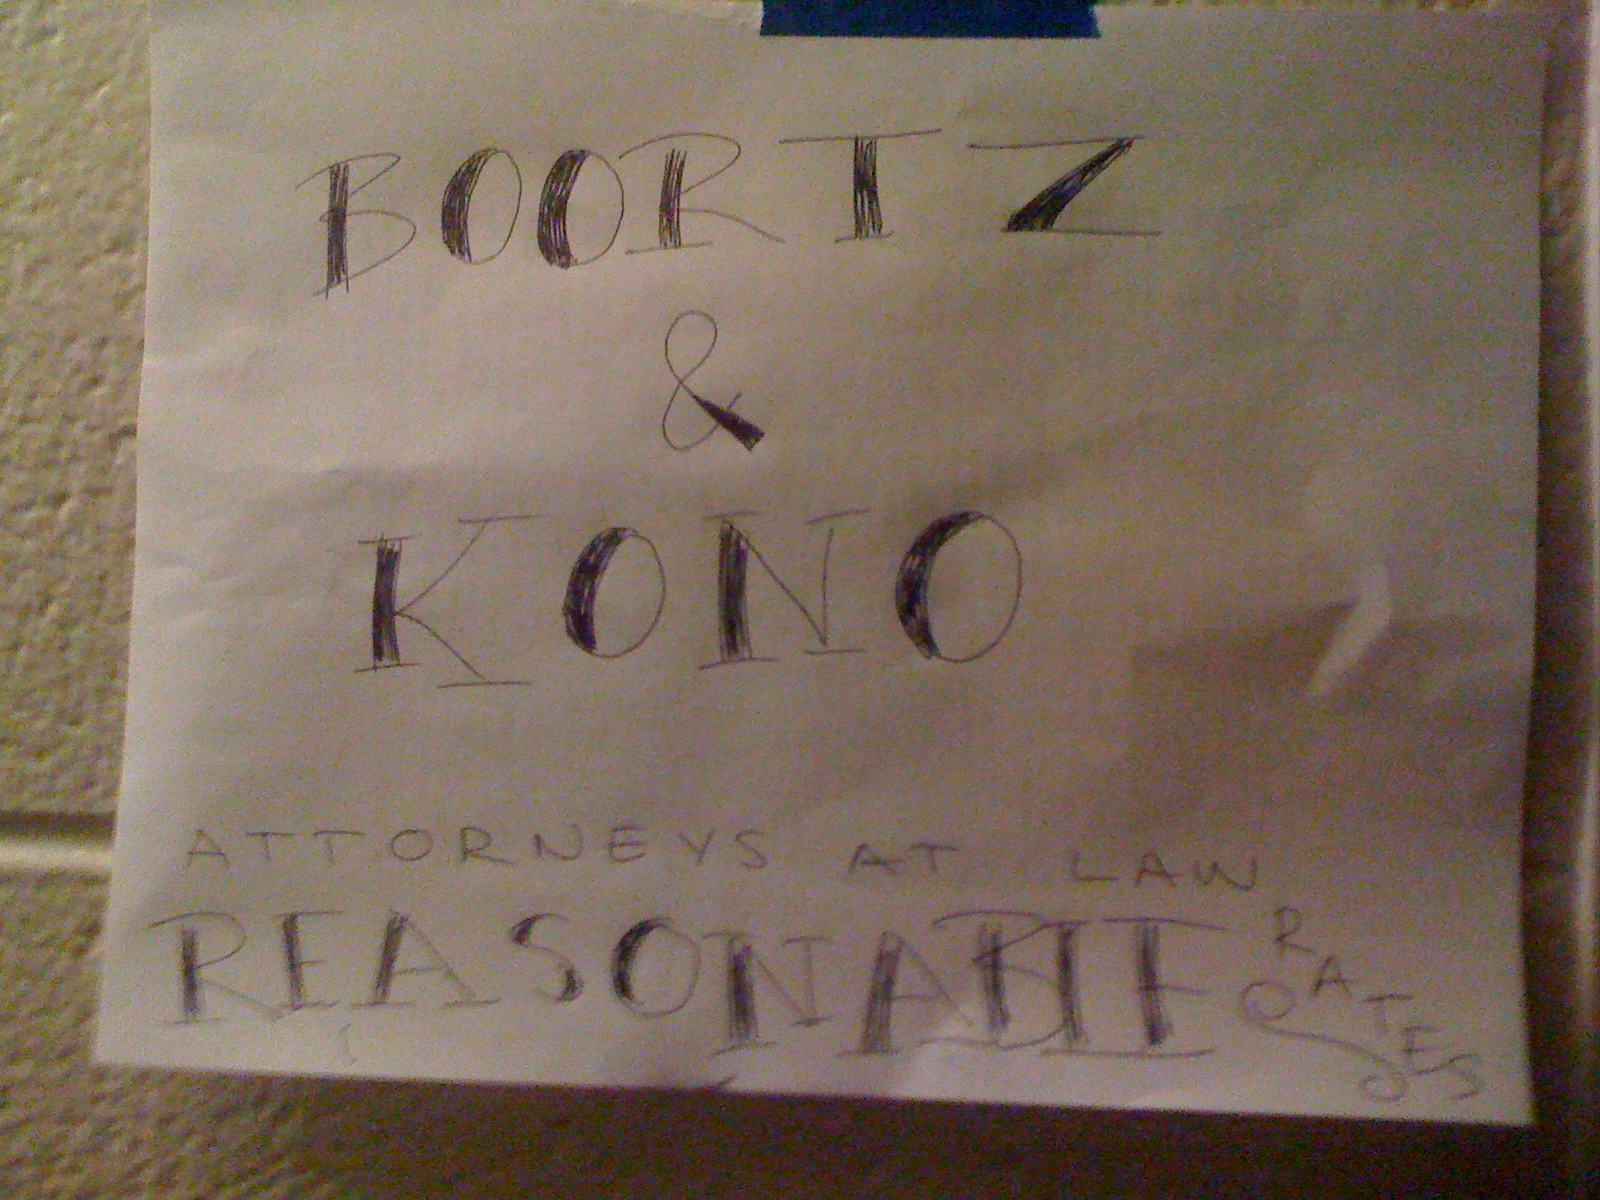 BOORTZ
&
KONO
ATTORNEYS AT LAW
REASONABLE RATES